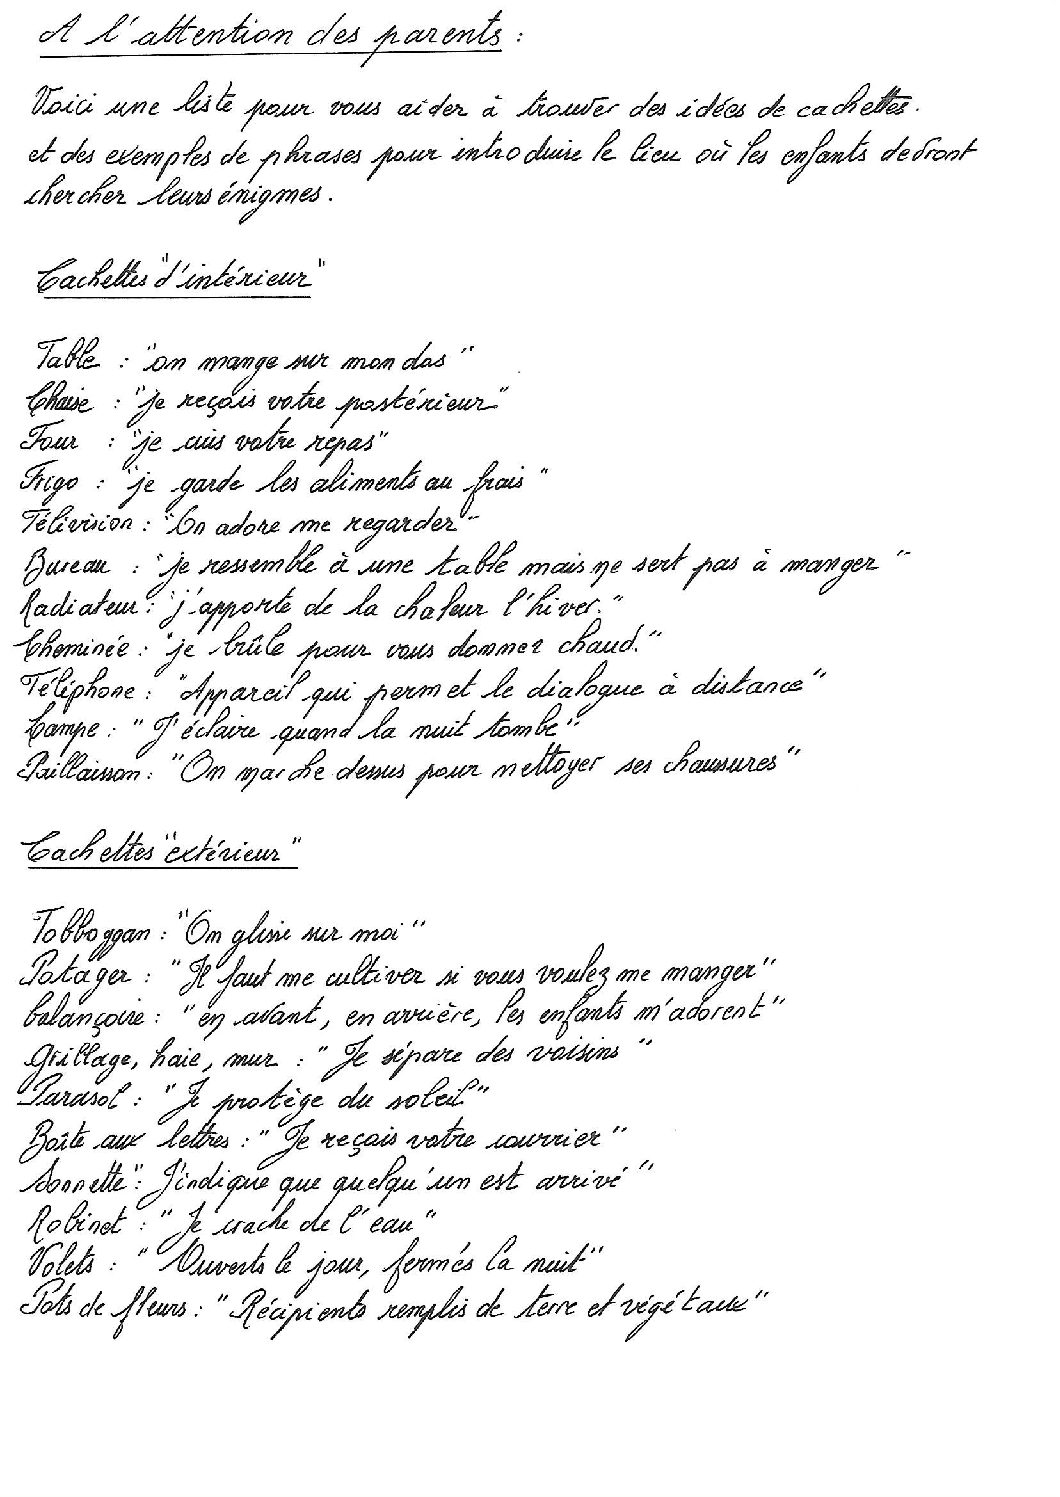 A l'attention des parents :
Voici une liste pour vous aider à trouver des idées de cachettes.
et des exemples de phrases pour introduire le lieu où les enfants devront
chercher leurs énigmes.
Cachettes "d'intérieur"
Table : "on mange sur mon dos"
Chaise : "je reçois votre postérieur"
Four : "je cuis votre repas"
Frigo : "je garde les aliments au frais"
Télévision : "On adore me regarder"
Bureau : "je ressemble à une table mais ne sert pas à manger"
Radiateur : "j'apporte de la chaleur l'hiver."
Cheminée : "je brûle pour vous donner chaud."
Téléphone : "Appareil qui permet le dialogue à distance"
Lampe : "J'éclaire quand la nuit tombe"
Paillasson : "On marche dessus pour nettoyer ses chaussures"
Cachettes "extérieur"
Tobboggan : "On glisse sur moi"
Potager : "Il faut me cultiver si vous voulez me manger"
balançoire : "en avant, en arrière, les enfants m'adorent"
Grillage, haie, mur : "Je sépare des voisins"
Parasol : "Je protège du soleil"
Boîte aux lettres : "Je reçois votre courrier"
Sonnette" : J'indique que quelqu'un est arrivé"
Robinet : "Je crache de l'eau"
Volets : "Ouverts le jour, fermés la nuit"
Pots de fleurs : "Récipients remplis de terre et végétaux"